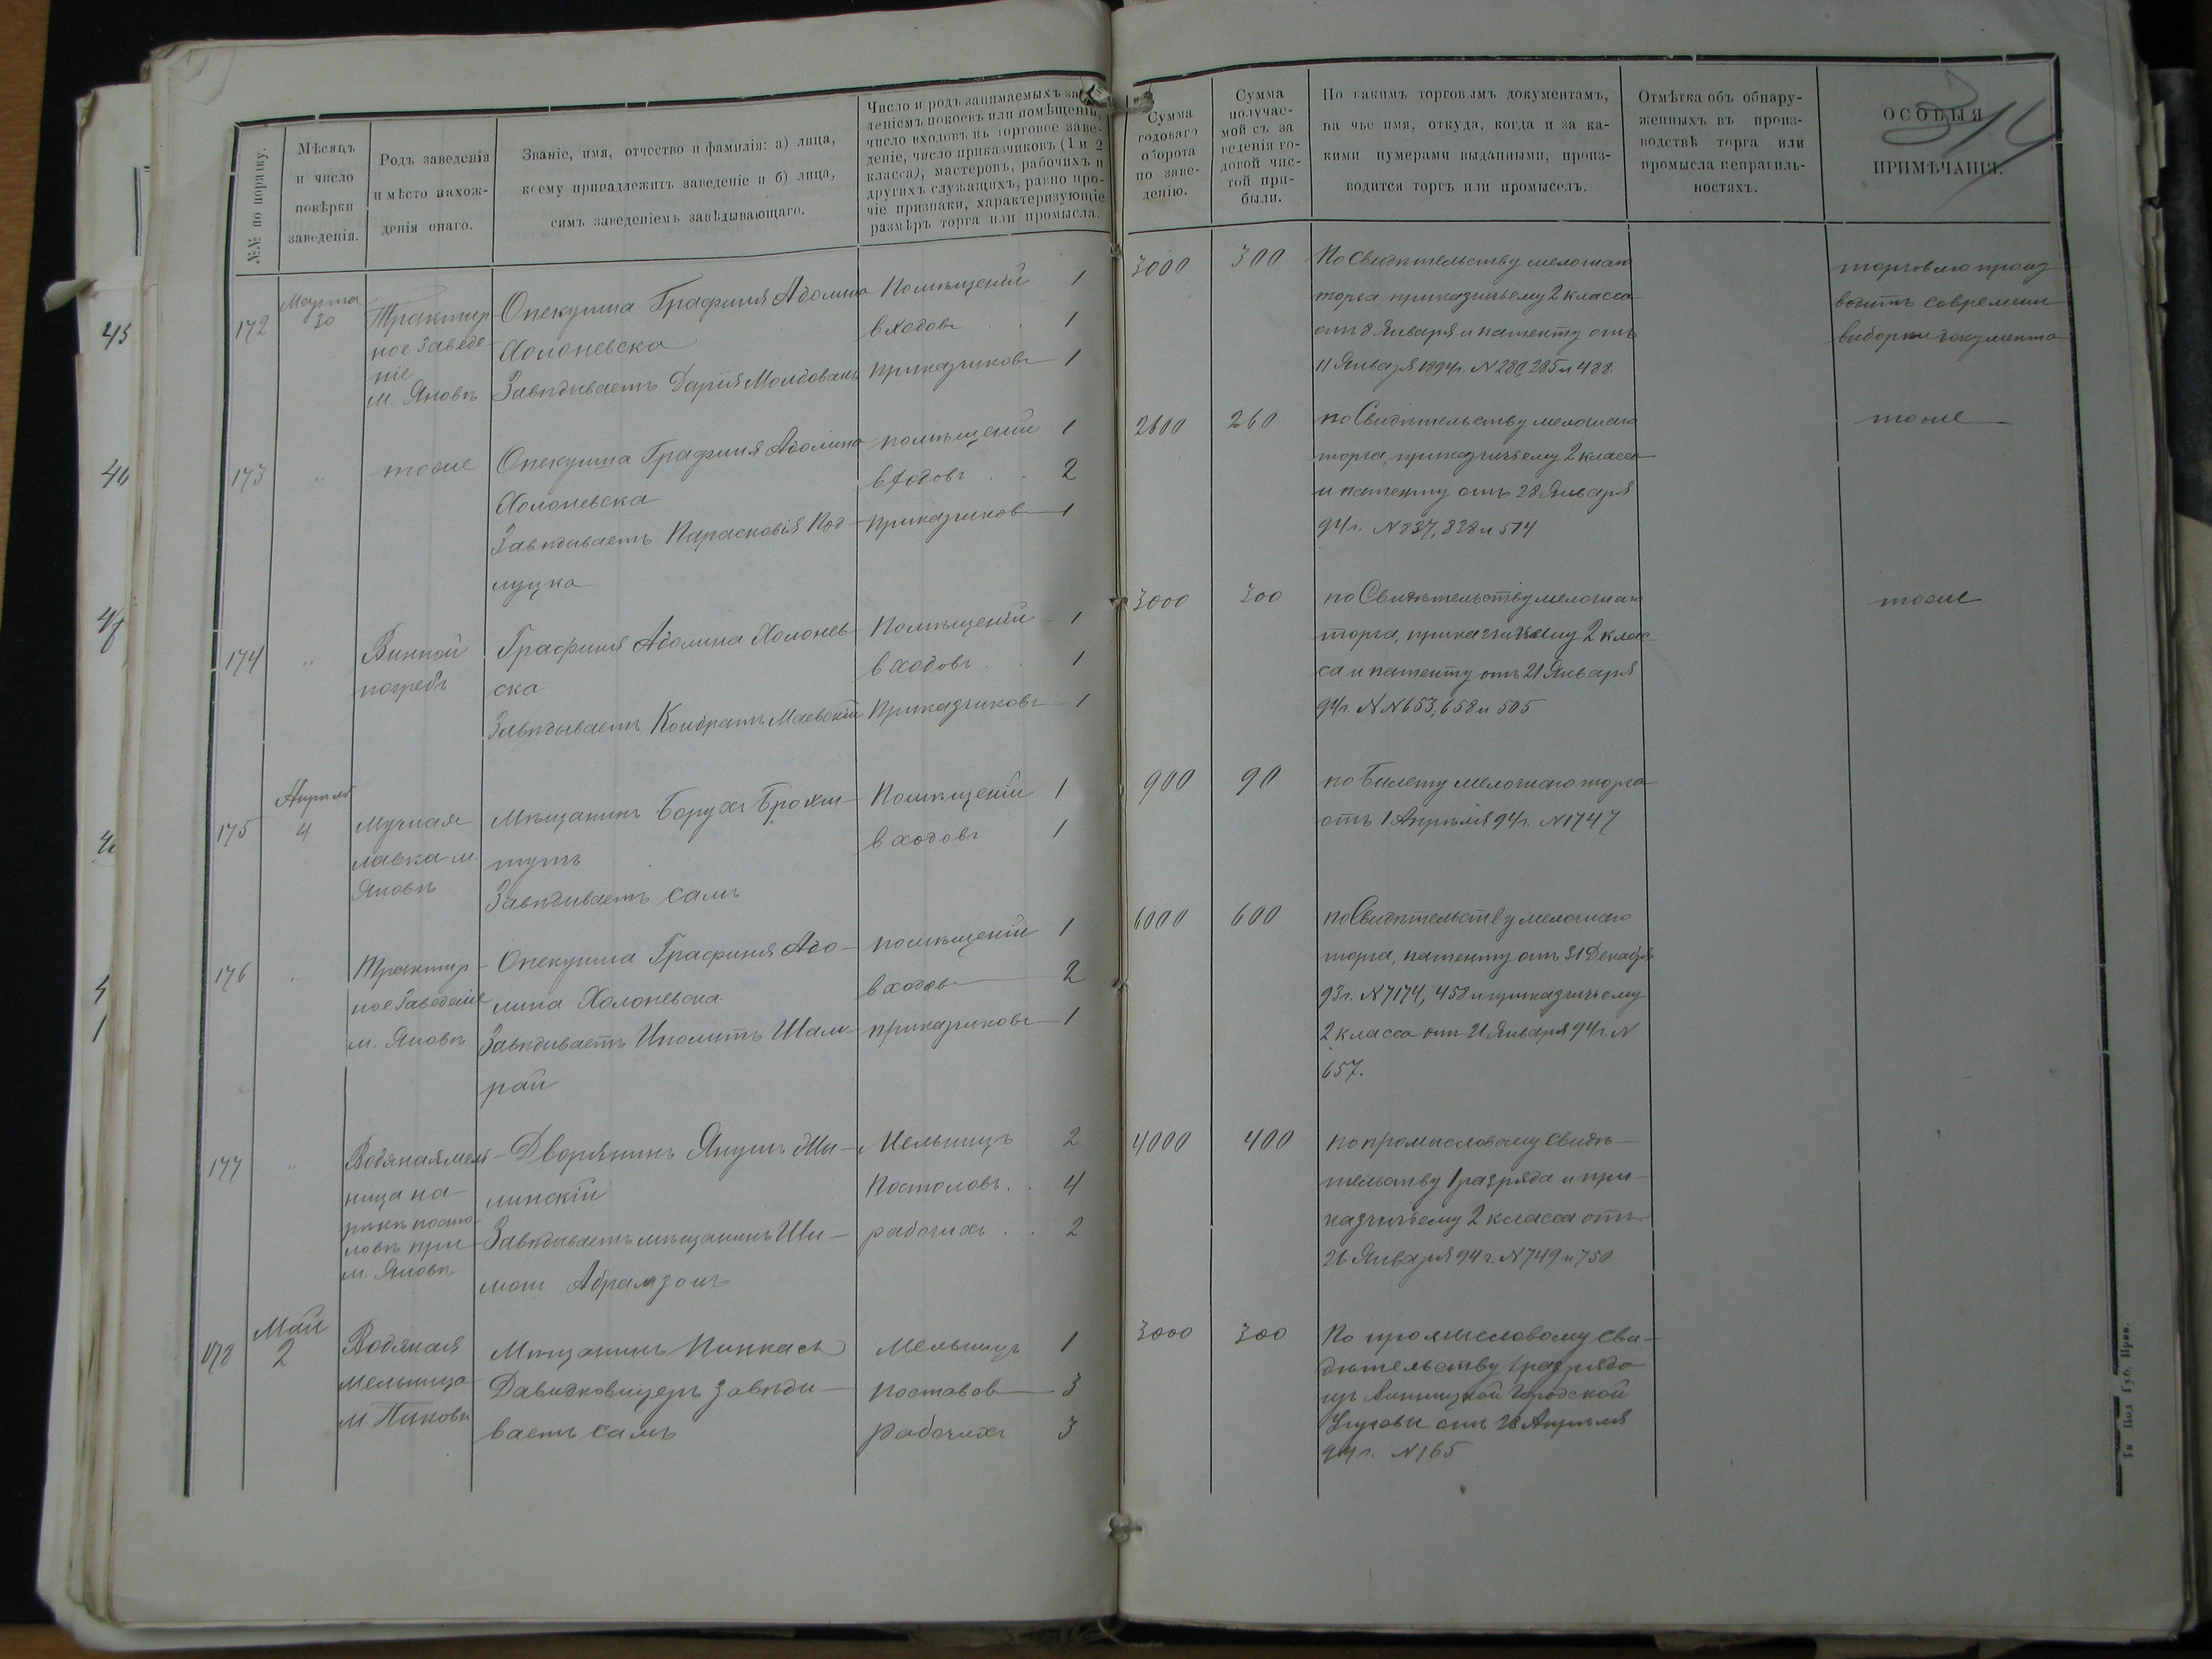 314
№№ по порядку.
Мѣсяцъ
и число
повѣрки
заведенія.
Родъ заведенія
и мѣсто нахож-
денія онаго.
Званіе, имя, отчество и фамилія: а) лица,
коему принадлежитъ заведеніе и б) лица,
симъ заведеніемъ завѣдывающаго.
Число и родъ занимаемыхъ за-
веденіемъ покоевъ или помѣщеній,
число входовъ въ торговое заве-
деніе, число приказчиковъ (1 и 2
класса), мастеровъ, рабочихъ и
другихъ служащихъ, равно про-
чіе признаки, характеризующіе
размѣръ торга или промысла.
Сумма
годоваго
оборота
по заве-
денію.
Сумма
получае-
мой съ за
веденія го-
довой чис-
той при-
были.
По какимъ торговымъ документамъ,
на чье имя, откуда, когда и за ка-
кими нумерами выданными, произ-
водится торгъ или промыселъ.
Отмѣтка объ обнару-
женныхъ въ произ-
водствѣ торга или
промысла неправиль-
ностяхъ.
ОСОБЫЯ
ПРИМѢЧАНІЯ.
172
Марта
30
Трактир-
ное заведе-
ніе
м. Яновъ
Опекунша Графиня Адолина
Холоневска
Завѣдываетъ Дарія Молдованъ
Помѣщеній 1
входовъ 1
Приказчиковъ 1
3000
300
По Свидѣтельству мелочнаго
торга, приказчичьему 2 класса
отъ 8 Января и патенту отъ
11 Января 1894г. N 280, 285 и 488.
торговлю произ
водитъ современи
выборки документа
173
"
тоже
Опекунша Графиня Адолина
Холоневска
Завѣдываетъ Парасковія Под-
луцка
помѣщеній 1
входовъ 2
Приказчиковъ 1
2600
260
по Свидѣтельству мелочнаго
торга, приказчичьему 2 класса
и патенту отъ 28 Января
94г. N 837, 828 и 514
тоже
174
"
Винной
погребъ
Графиня Адолина Холонев-
ска
Завѣдываетъ Кондратъ Маевскій
Помѣщеній 1
входовъ 1
Приказчиковъ 1
3000
300
по Свидѣтельству мелочнаго
торга, приказчичьему 2 клас-
са и патенту отъ 21 Января
94г. NN 653, 658 и 505
тоже
175
Апрѣля
4
Мучная
лавка м.
Яновъ
Мѣщанинъ Борухъ Брохш-
тутъ
Завѣдываетъ самъ
Помѣщеній 1
входовъ 1
900
90
по Билету мелочнаго торга
отъ 1 Апрѣля 94г. N 1747
176
"
Трактир-
ное Заведеніе
м. Яновъ
Опекунша Графиня Адо-
лина Холоневска
Завѣдываетъ Иполитъ Шам-
рай
помѣщеній 1
входовъ 2
приказчиковъ 1
6000
600
по Свидѣтельству мелочнаго
торга, патенту отъ 31 Декабря
93г. N 7174, 458 и приказчичьему
2 класса отъ 21 Января 94г. N
657.
177
"
Водяная мель-
ница на
рѣкѣ посто-
ловѣ при
м. Яновъ
Дворянинъ Янушъ
линскій
Завѣдываетъ мѣщанинъ
Абрамзонъ
Мельницъ 2
Постоловъ 4
рабочихъ 2
4000
400
по промысловому Свидѣ-
тельству 1 разряда и при-
казчичьему 2 класса отъ
26 Января 94г. N 749 и 750
178
Май
2
Водяная
мельница
м. Пиковъ
Мѣщанинъ Пинкасъ
Давидковицеръ завѣды-
ваетъ самъ
Мельницъ 1
поставовъ 3
Рабочихъ 3
3000
300
По промысловому Сви-
дѣтельству 1 разряда
изъ Винницкой Городской
Управы отъ 28 Апрѣля
94г. N 165
45
46
Ти Под Губ. Прав.